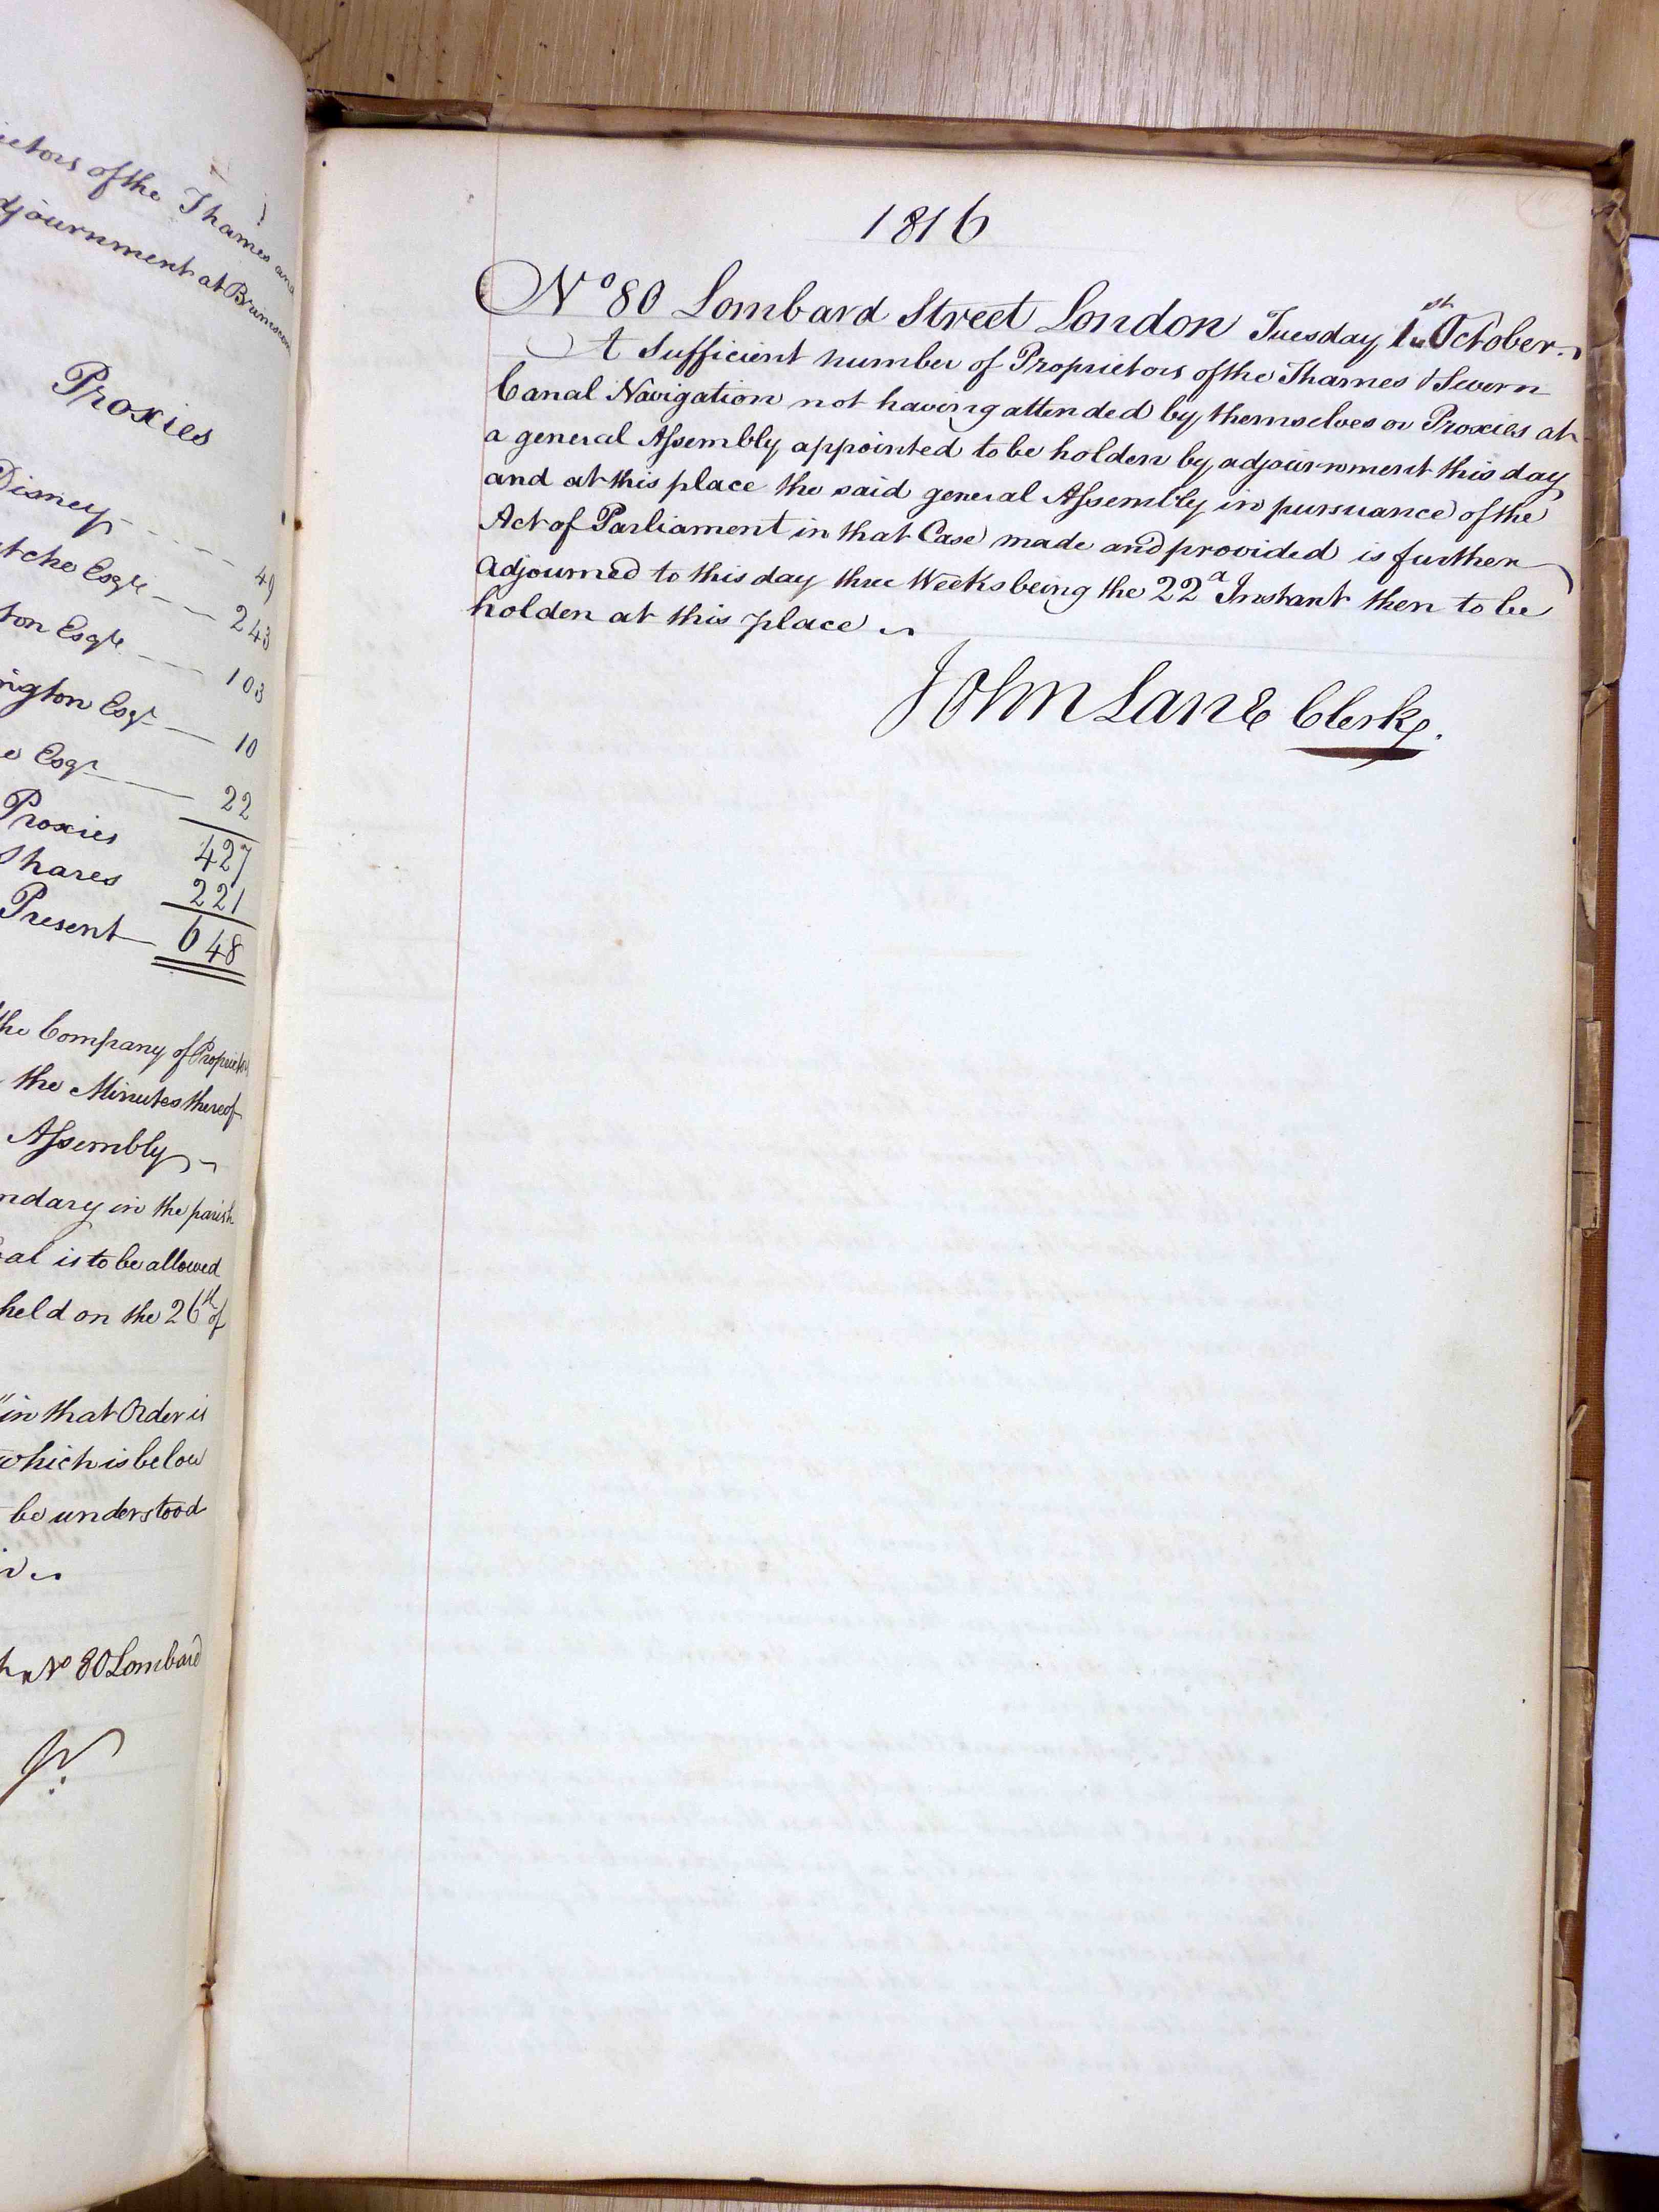 ietors of the Thames and
djournment at Brimscom
Proxies
Disney 49
tche Esqre 243
ton Esqre 103
ngton Esqr 10
e Esqr 22
Proxies 427
Shares 221
Present 648
the Company of Proprietors
the Minutes thereof
Assembly
ndary in the parish
al is to be allowed
held on the 26th of
"in that Order is
which is below
be understood
No 80 Lombard
1816
No 80 Lombard Street London Tuesday 1st October
A Sufficient number of Proprietors of the Thames & Severn
Canal Navigation not having attended by themselves or Proxies at
a general Assembly appointed to be holden by adjournment this day
and at this place the said general Assembly in pursuance of the
Act of Parliament in that Case made and provided is further
adjourned to this day three Weeks being the 22d Instant then to be
holden at this place
John Lane Clerk.